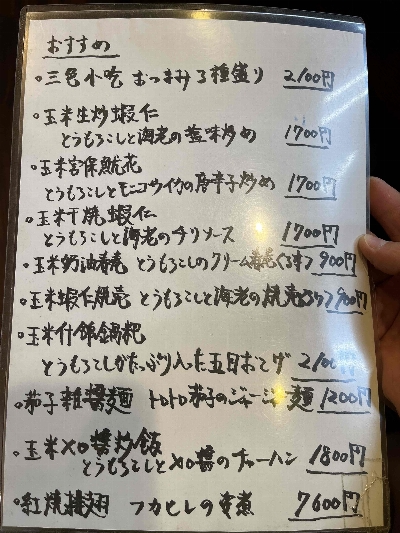 おすすめ
。三色小吃 おつまみ3種盛り 2100円
。玉米生炒蝦仁
とうもろこしと海老の塩味炒め 1700円
。玉米宮保魷花
とうもろこしとモンゴウイカの唐辛子炒め 1700円
。玉米干焼蝦仁
とうもろこしと海老のチリソース 1700円
。玉米奶油春巻 とうもろこしのクリーム春巻 900円
。玉米蝦仁焼売 とうもろこしと海老の焼売 900円
。玉米什錦鍋粑
とうもろこしがたっぷり入った五目おこげ 2100円
。茄子雜醤麺 トロトロ茄子のジャージャー麺 1200円
。玉米XO醤炒飯
とうもろこしとXO醤のチャーハン 1800円
。紅焼排翅 フカヒレの姿煮 7600円